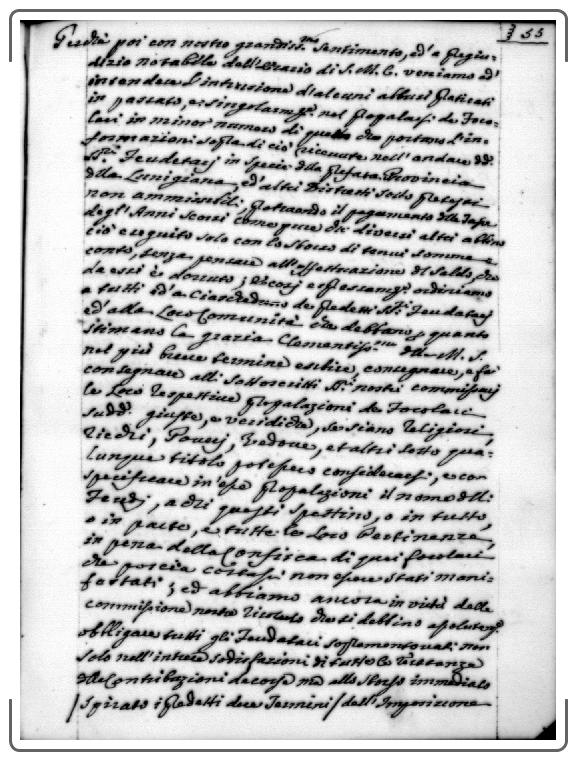 355
Perché poi con nostro grandiss.mo sentimento, ed' a pregiu-
dizio notabile dell'Erario di S. M. C. veniamo ad'
intendere l'intrusione d'alcuni abusi praticati
in passato, e singolarm.te nel propalarsi de Foco-
lari in minor numero di quello che portano l'in-
formazioni sopra di ciò ricevute nell'andare dd.
SS.ri Feudatarj in specie della prefata Provincia
della Lunigiana, ed'altri Distretti sotto pretesti
non ammissibili; protraendo il pagamento delle Tasse
degl'Anni scorsi come pure da diversi altri
ciò eseguito solo con lo sborso di tenui somme a
conto, senza pensare all'effettuazione del saldo, che
da essi è dovuto; Perciò espressam.te ordiniamo
a tutti ed'a ciascheduno de predetti SS.ri Feudatarj
ed'alla Loro Comunità che debbano p quanto
stimano la grazia Clementiss.ma della M. S.
nel più breve termine esibire, consegnare, e far
consegnare alli sottoscritti SS.ri nostri commissarj
le Loro respettive propalazioni de Focolari
sudd.i giuste, e veridiche, se siano Religiosi,
Ricchi, Poveri, Vedove, et altri sotto qua-
lunque titolo potessero considerarsi, e con
specificare in'esse propalazioni il nome delli
Feudi, a chi questi spettino, o in tutto,
o in parte, e tutte le Loro Pertinenze,
in pena della Confisca di quei Focolari
che poscia costassi non essere stati mani-
festati; ed abbiamo ancora in virtù della
commissione nostra risoluto che si debbino
obbligare tutti gli Feudatarj soprammentovati non
solo nell'intiera sodisfazioni di tutto le restanze
delle Contribuzioni decorse ma allo sborso immediato
/ spirato i predetti dieci Termini / dell'Imposizione